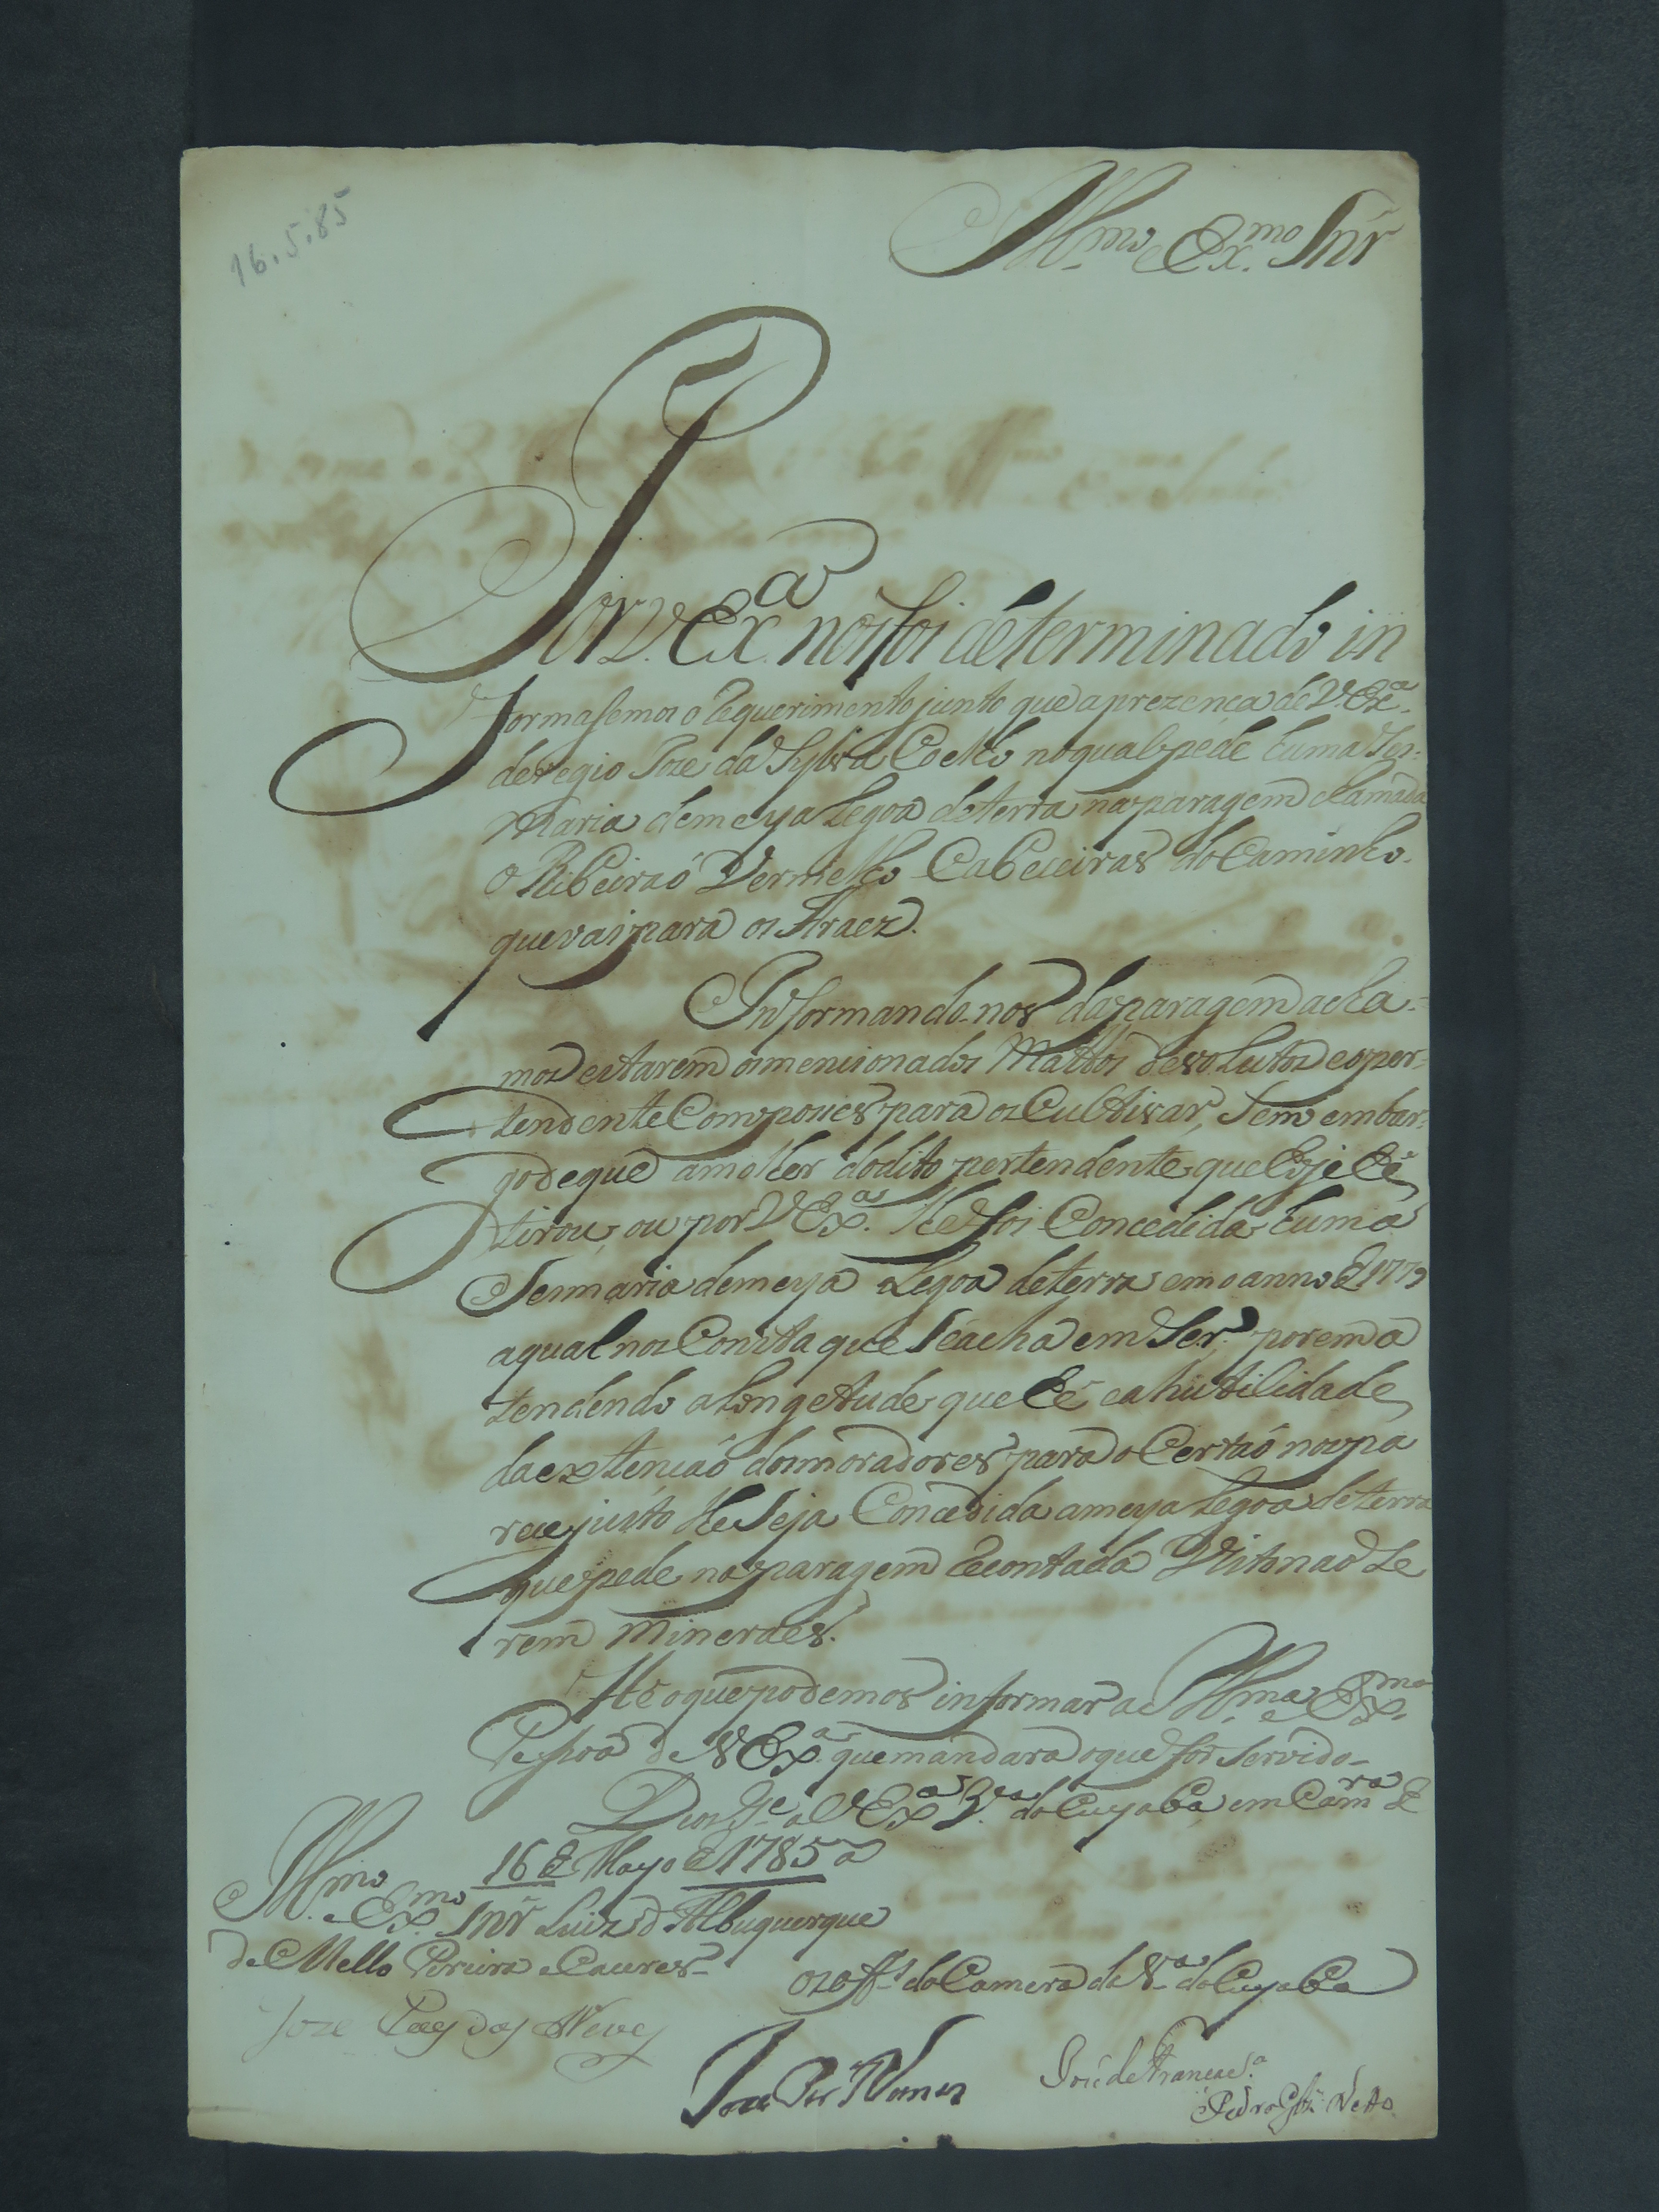 16.5.85
Illmo e Exmo Snr
Por V. Exa. nos foi determinado in
formasemos o Requerimento junto que a prezença de V. Exa.
deregio Joze da Sylva Coelho no qual pede huma Ses-
maria de meya Legoa de terra na paragem chamada
o Ribeiraó Vermelho Cabeceiras do Caminho
que vai para os Araez.
Informando-nos da paragem acha-
mos estarem os mencionados Mattos devolutos e o per-
tendente Com posses para os Cultivar, Sem embar-
go de que a molher do dito pertendente que hoje hé
tirou, ou por V Exa. lhe foi Concedida huma
Sesmaria de meya Legoa de terra em o anno de 1779
a qual nos Consta que Se acha em Ser, porem a
tendendo a Longetude que hé e a hutilidade
da extençaó dos moradores para o Certaó nos pa
rece justo lhe Seja Concedida a meya Legoa de terra
que pede na paragem Recontada Visto naó Se
rem Mineraes.
He o que podemos informar a Illma e Exma
Pessoa de V Exa. que mandara o que for Servido.
Deos Ge a V Exa Va. do Cuyabá em Camra de
16 de Mayo de 1785 a
Illmo e Exmo Snr Luiz d Albuquerque
de Mello Pereira e Caceres
os offs da Camera da Va do Cuyaba
Joze Paes das Neves
Joze Per Nunes
Pedro Netto